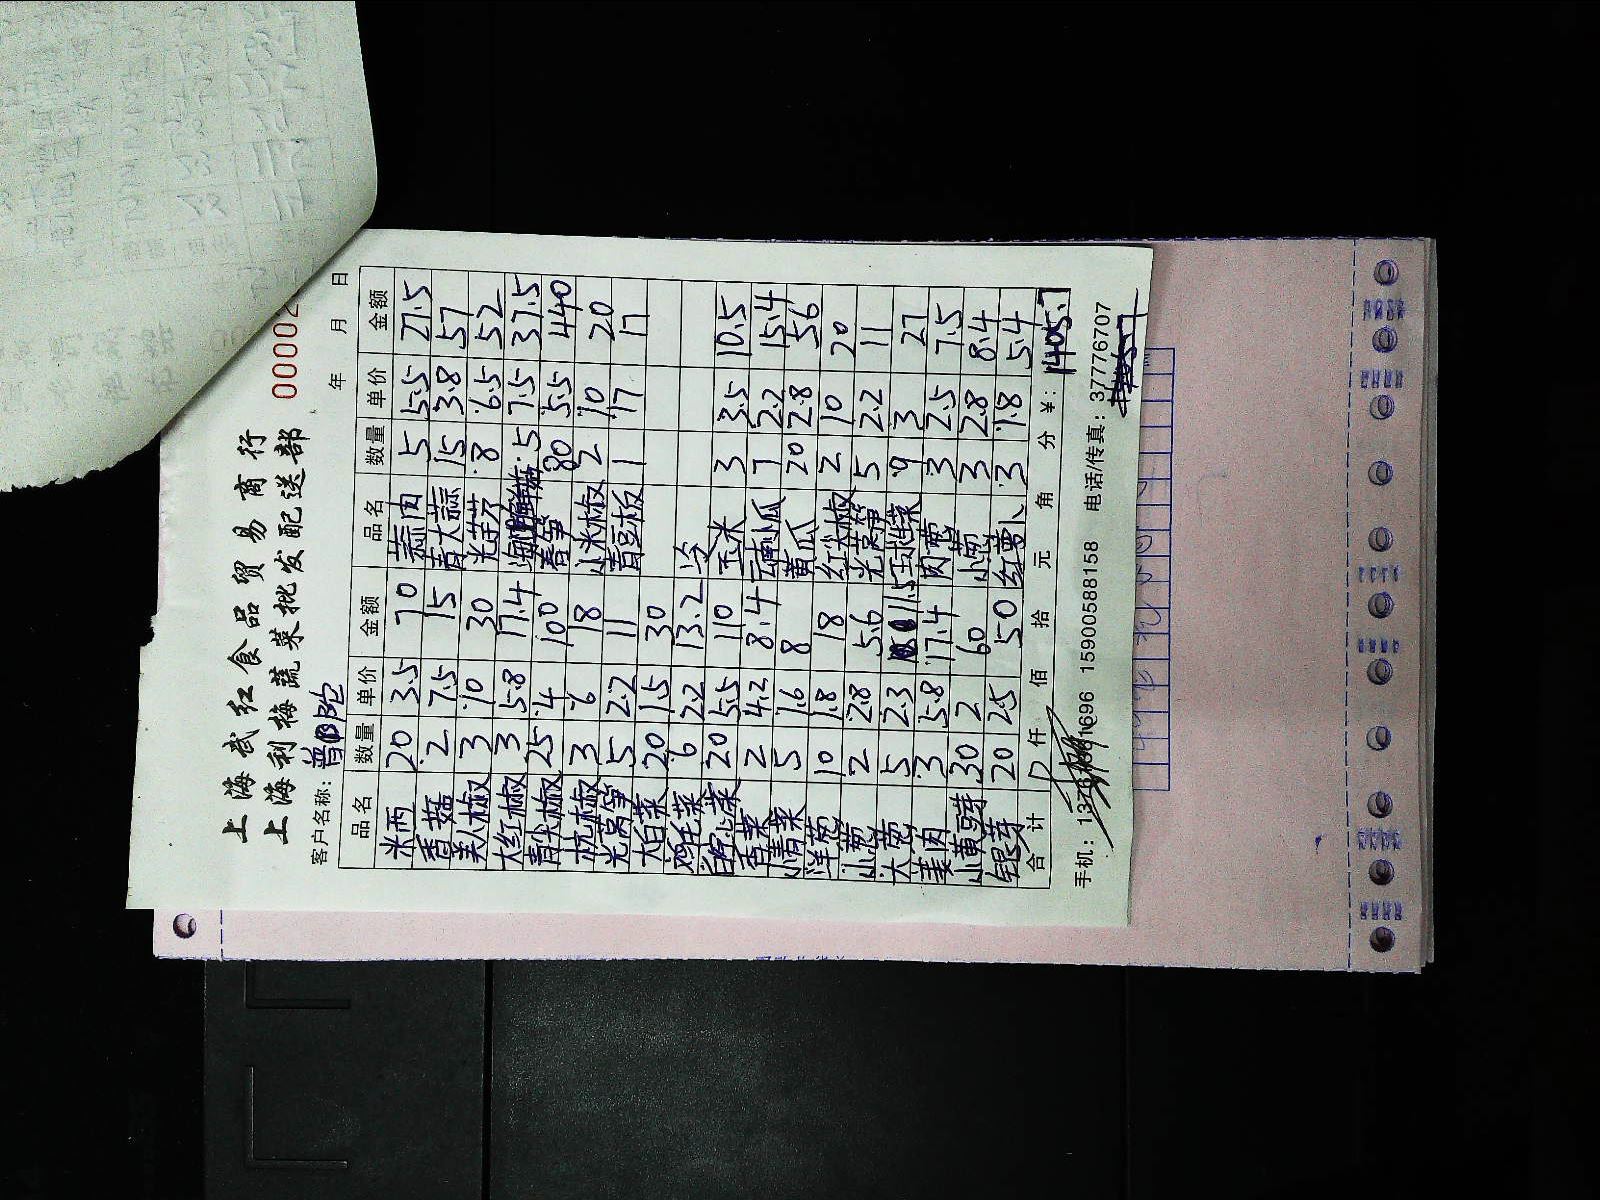 上海武红食品贸易商行
上海利梅蔬菜批发配送部
00002
客户名称: 普陀 年 月 日
品名 数量 单价 金额 品名 数量 单价 金额
20 3.5 70 蒜肉 5 5.5 27.5
香菇 2 7.5 15 青大蒜 15 3.8 57
美人椒 3 10 30 光芋艿 8 6.5 52
大红椒 3 5.8 17.4 海鲜菇 5 7.5 37.5
青尖椒 25 4 100 春笋 80 5.5 440
杭椒 3 6 18 小米椒 2 10 20
光莴笋 5 2.2 11 青豆板 1 17 17
大白菜 20 1.5 30
6 2.2 13.2
20 5.5 110 玉米 3 3.5 10.5
香菜 2 4.2 8.4 云南瓜 7 2.2 15.4
小青菜 5 1.6 8 黄瓜 20 2.8 56
洋葱 10 1.8 18 红尖椒 2 10 20
小葱 2 2.8 5.6 光莴笋 5 2.2 11
大葱 5 2.3 11.5 9 3 27
姜肉 3 5.8 17.4 肉葱 3 2.5 7.5
小黄豆芽 30 2 60 小葱 3 2.8 8.4
银芽 20 2.5 50 红萝卜 3 1.8 5.4
合计 仟 佰 拾 元 角 分 ¥: 1405.7
手机: 1696 15900588158 电话/传真: 37776707